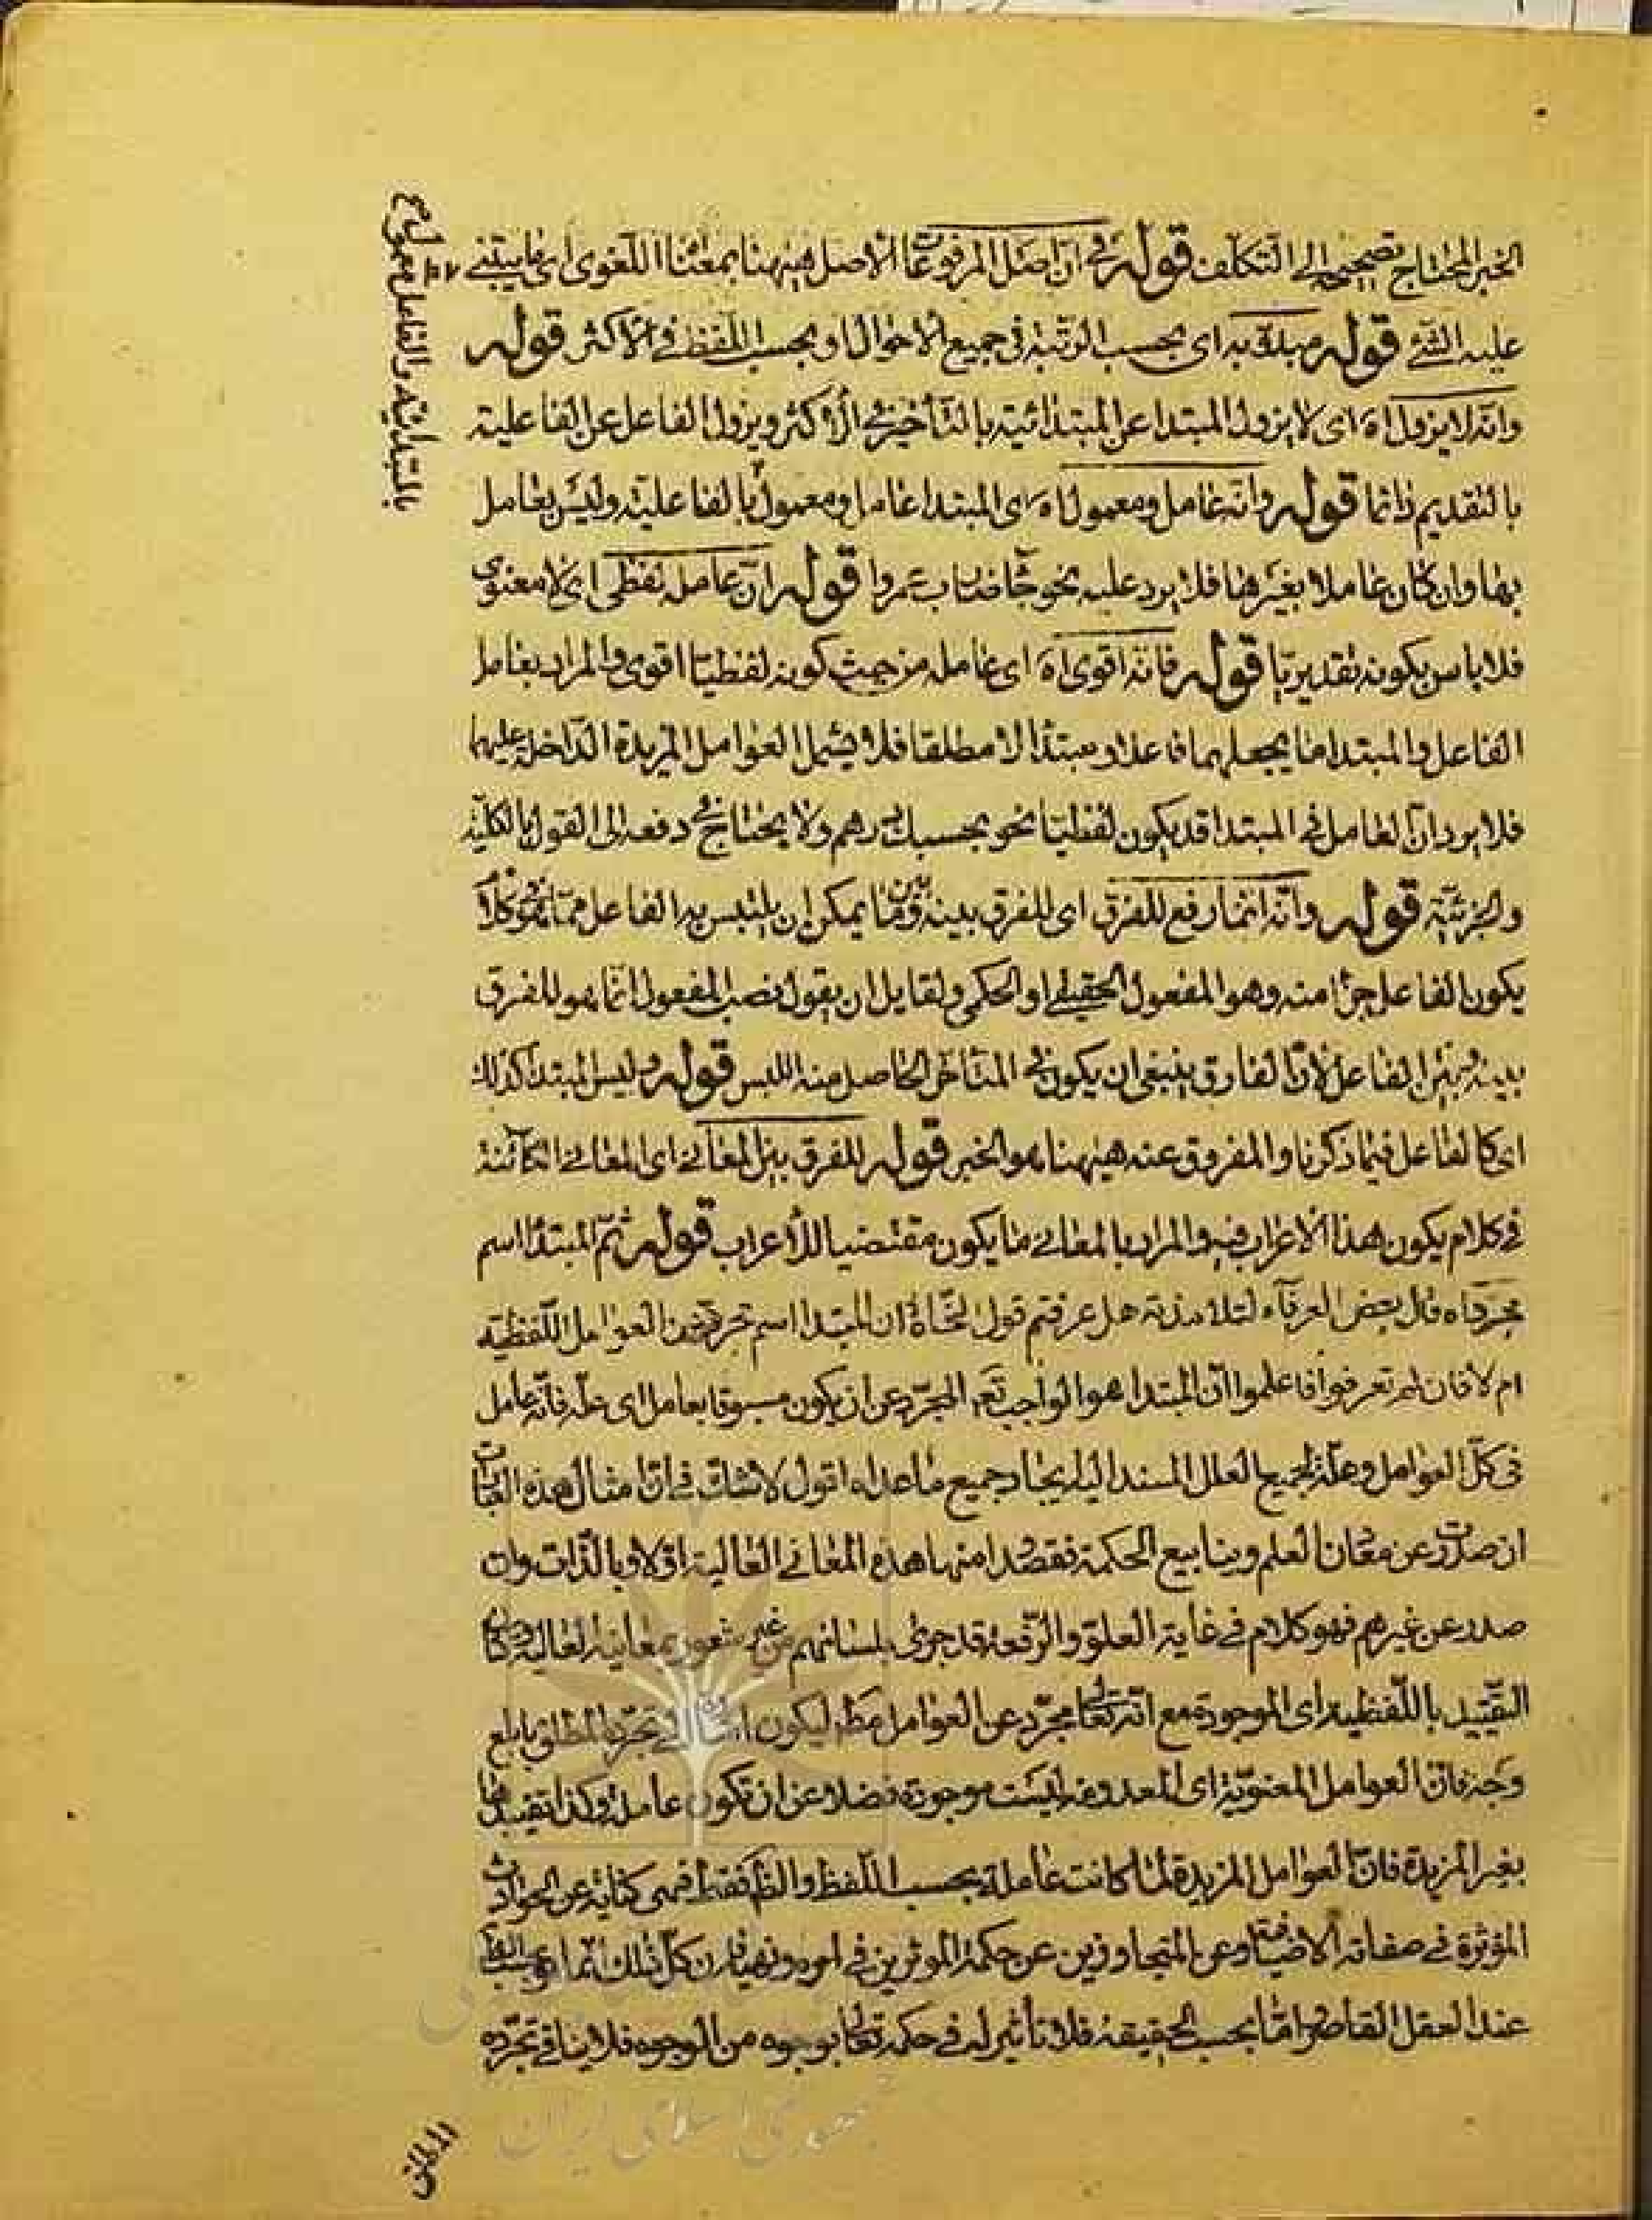 الخبر المحتاج تصحيحه الى التكلف قوله في ان اصل المرفوعات آه الاصل ههنا بمعناه اللغوى اى ما يبتنى
عليه الشئ قوله مبدؤ به اى بحسب الرتبة فى جميع الاحوال او بحسب اللفظ فى الاكثر قوله
وانه لا يزول آه اى لا يزول المبتدا عن المبتدائية بالتأخير فى الاكثر ويزول الفاعل عن الفاعلية
بالتقديم دائما قوله وانه عامل ومعمول آه اى المبتدا عامل ومعمول بالفاعلية وليس بعامل
بها وان كان عاملا بغيرها فلا يرد عليه نحو جا ضارب عمروا قوله ان عامله لفظى اى لا معنوى
فلا باس بكونه تقديريا قوله فانه اقوى آه اى عامله من حيث كونه لفظيا اقوى والمراد بعامل
الفاعل والمبتدا ما يجعلهما فاعلا ومبتدأ لا مطلقا فلا يشمل العوامل المزيدة الداخلة عليهما
فلا يرد ان العامل فى المبتدا قد يكون لفظيا نحو بحسبك درهم ولا يحتاج فى دفعه الى القول بالكلية
والجزئية قوله وانه انما رفع للفرق اى للفرق بينه وبين ما يمكن ان يلتبس به الفاعل مما
يكون الفاعل جزأ منه وهو المفعول الحقيقى او الحكمى ولقايل ان يقول نصب المفعول انما هو للفرق
بينه وبين الفاعل لان الفارق ينبغى ان يكون فى المتأخر الحاصل منه اللبس قوله وليس المبتدأ كذلك
اى كالفاعل فيما ذكرنا والمفروق عنه ههنا هو الخبر قوله للفرق بين المعانى اى المعانى الكائنة
فى كلام يكون هذا الاعراب فيه والمراد بالمعانى ما يكون مقتضيا للاعراب قوله ثم المبتدأ اسم
مجرد آه قال بعض العرفاء لتلامذته هل عرفتم قول النحاة ان المبتدا اسم مجرد عن العوامل اللفظية
ام لا فان لم تعرفوا فاعلموا ان المبتدا هو الواجب تعالى المجرد عن ان يكون مسبوقا بعامل اى علة فانه عامل
فى كل العوامل وعلة لجميع العلل المسند اليه ايجاد جميع ما عداه اقول لا شك فى ان امثال هذه العبارات
ان صدرت عن معادن العلم وينابيع الحكمة فقصدا منها هذه المعانى العالية اولا وبالذات وان
صدر عن غيرهم فهو كلام فى غاية العلو والرفعة قد جرى بلسانهم من غير شعور بمعانيه العالية
التقييد باللفظية اى الموجودة مع انه تعالى مجرد عن العوامل مطلقا ليكون تجرده المطلق بابلغ
وجه فان العوامل المعنوية اى المعدومة ليست موجودة فضلا عن ان تكون عاملة وكذا تقييدها
بغير المزيدة فان العوامل المزيدة لما كانت عاملة بحسب اللفظ والظاهر فقط فهى كناية عن الحوادث
المؤثرة فى صفاته الاضافية وعن المتجاوزين عن حكمة الموثرين فى امره ونهيه فان كل ذلك انما هو بحسب الظاهر
عند العقل القاصر واما بحسب الحقيقة فلا تأثير له فى حكمه تعالى بوجه من الوجوه فلا ينافى تجرده
المطلق